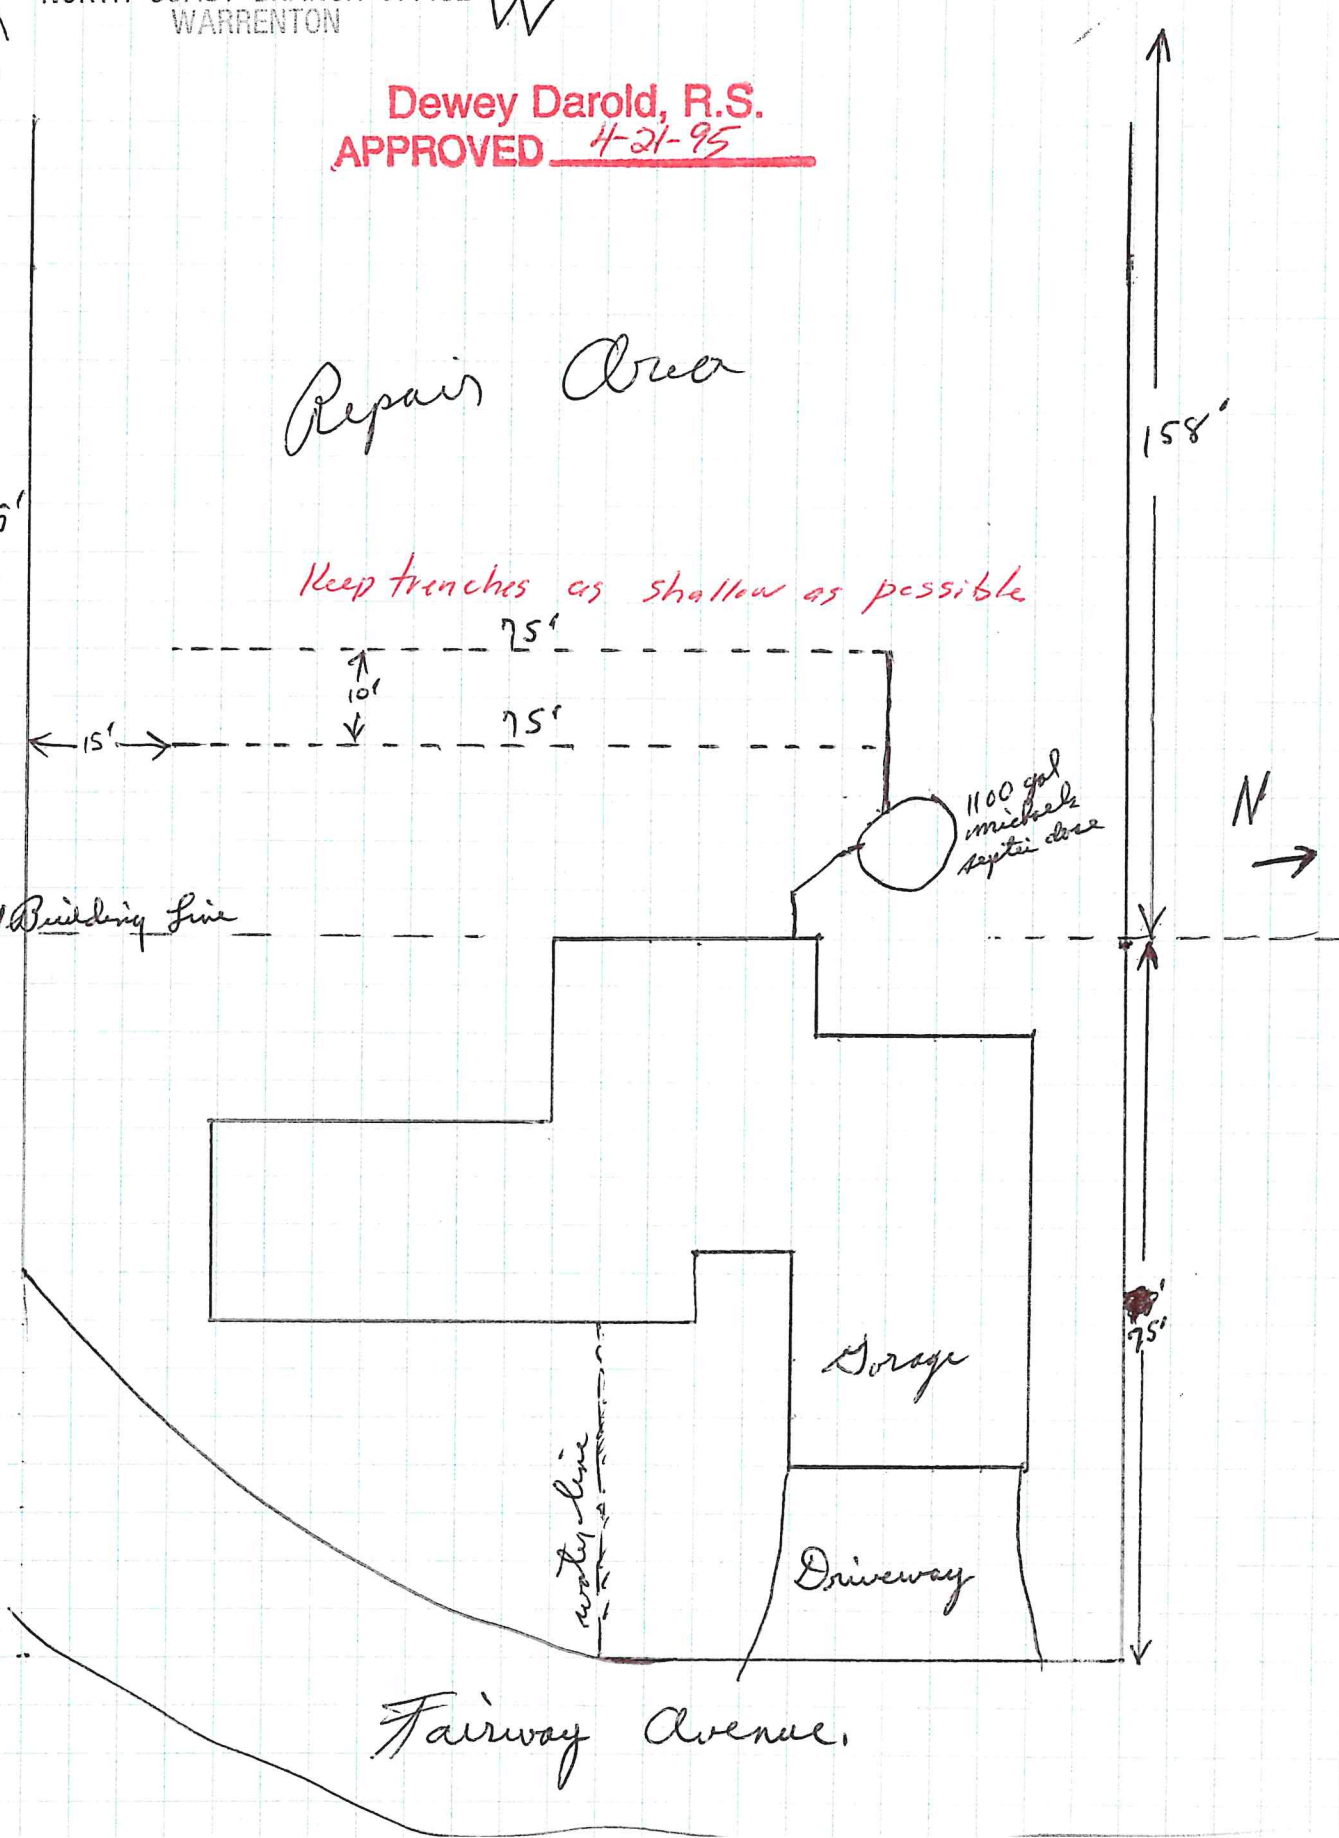 WARRENTON
W
Dewey Darold, R.S.
APPROVED 4-21-95
Repair Area
158'
5'
Keep trenches as shallow as possible
75'
10'
15'
75'
1100 gal
septic dose
N
Building Line
75'
Garage
water line
Driveway
Fairway Avenue.